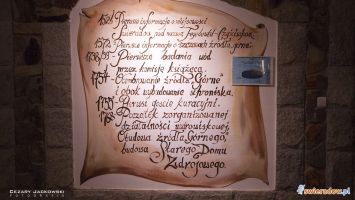 1524 Pierwsza informacja o miejscowości
Świeradów pod nazwą Fegebeutel-Czyścibutom.
1572 Pierwsze informacje o źródłach „źródła górne”
1738/39 Pierwsze badania wód
przez komisję książęcą.
1754 Ocembrowanie źródła „Górne”
i obok wybudowanie schroniska.
1755 Pierwsi goście kuracyjni.
1768 Początek zorganizowanej
działalności uzdrowiskowej.
Obudowa źródła „Górnego”,
budowa Starego Domu
Zdrojowego.
CEZARY JACKOWSKI
FOTOGRAFIA
swieradow.pl